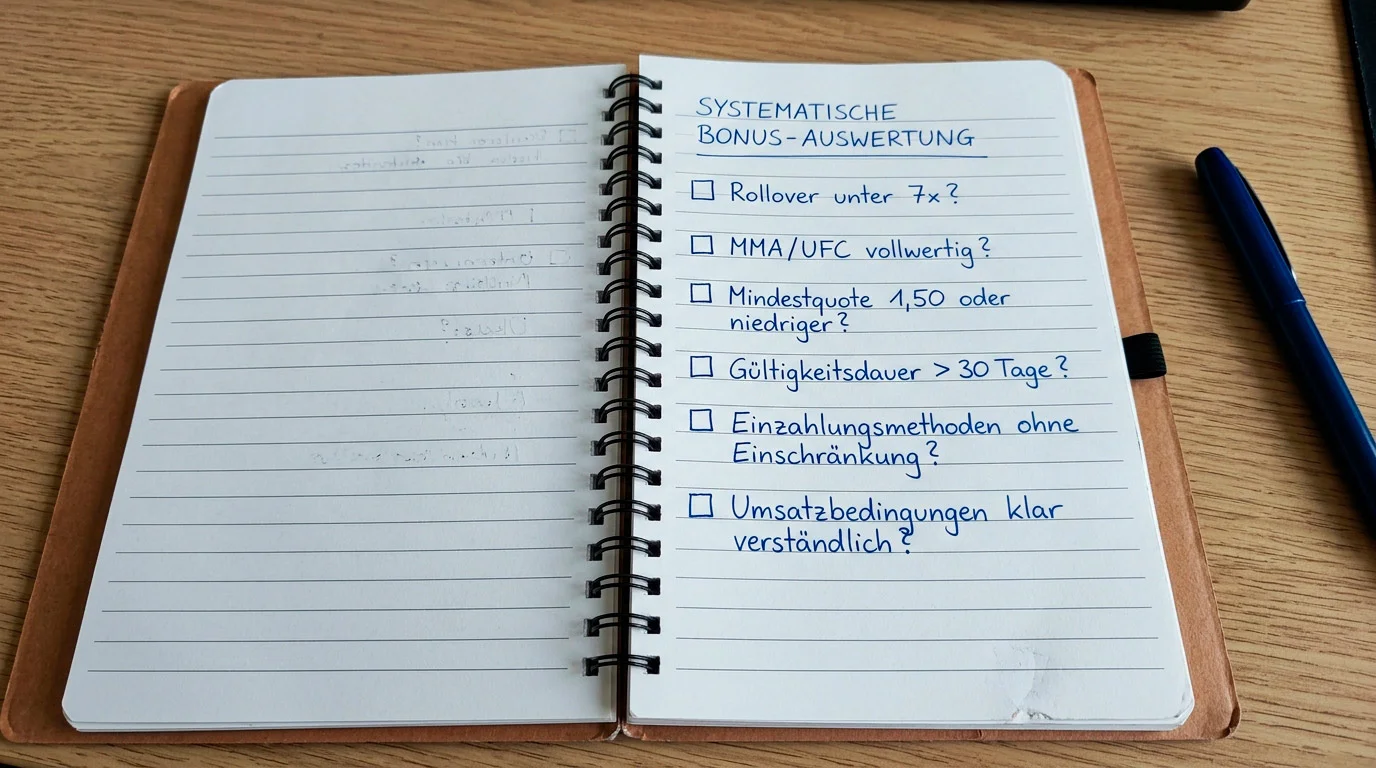 SYSTEMATISCHE
BONUS-AUSWERTUNG
Rollover unter 7x?
MMA/UFC vollwertig?
Mindestquote 1,50 oder
niedriger?
Gültigkeitsdauer > 30 Tage?
Einzahlungsmethoden ohne
Einschränkung?
Umsatzbedingungen klar
verständlich?